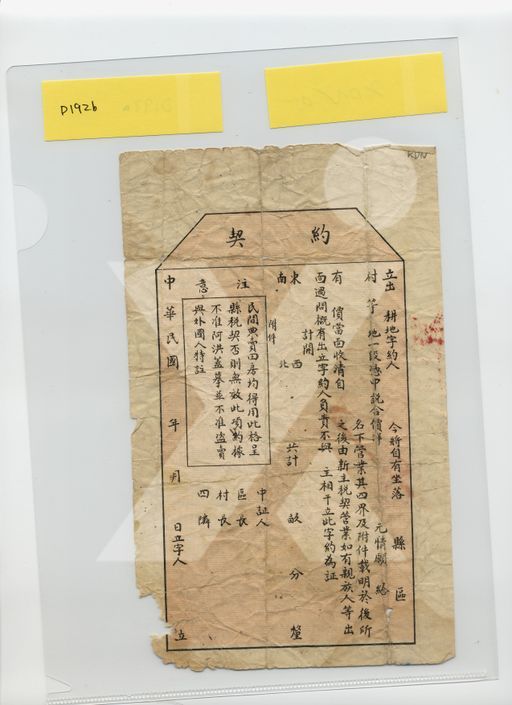 D1926
KUN
契約
立出　耕地字約人　今將自有坐落　縣　區
村　等　地一段憑中說合價洋　元情願　給
名下營業其四界及附件載明於後所
有　價當面收清自　之後由新主稅契營業如有親族人等出
面過問概有出立字約人負責不與　主相干立此字約為証
計開
東　西
南　北　共計　畝　分　釐
附件
注意
民間買賣田房均得用此格呈
縣稅契否則無效此項約據
不准阿洪蓋摹並不准盜賣
與外國人特註
中証人
區長
村長
四隣
中華民國　年　月　日立字人　立